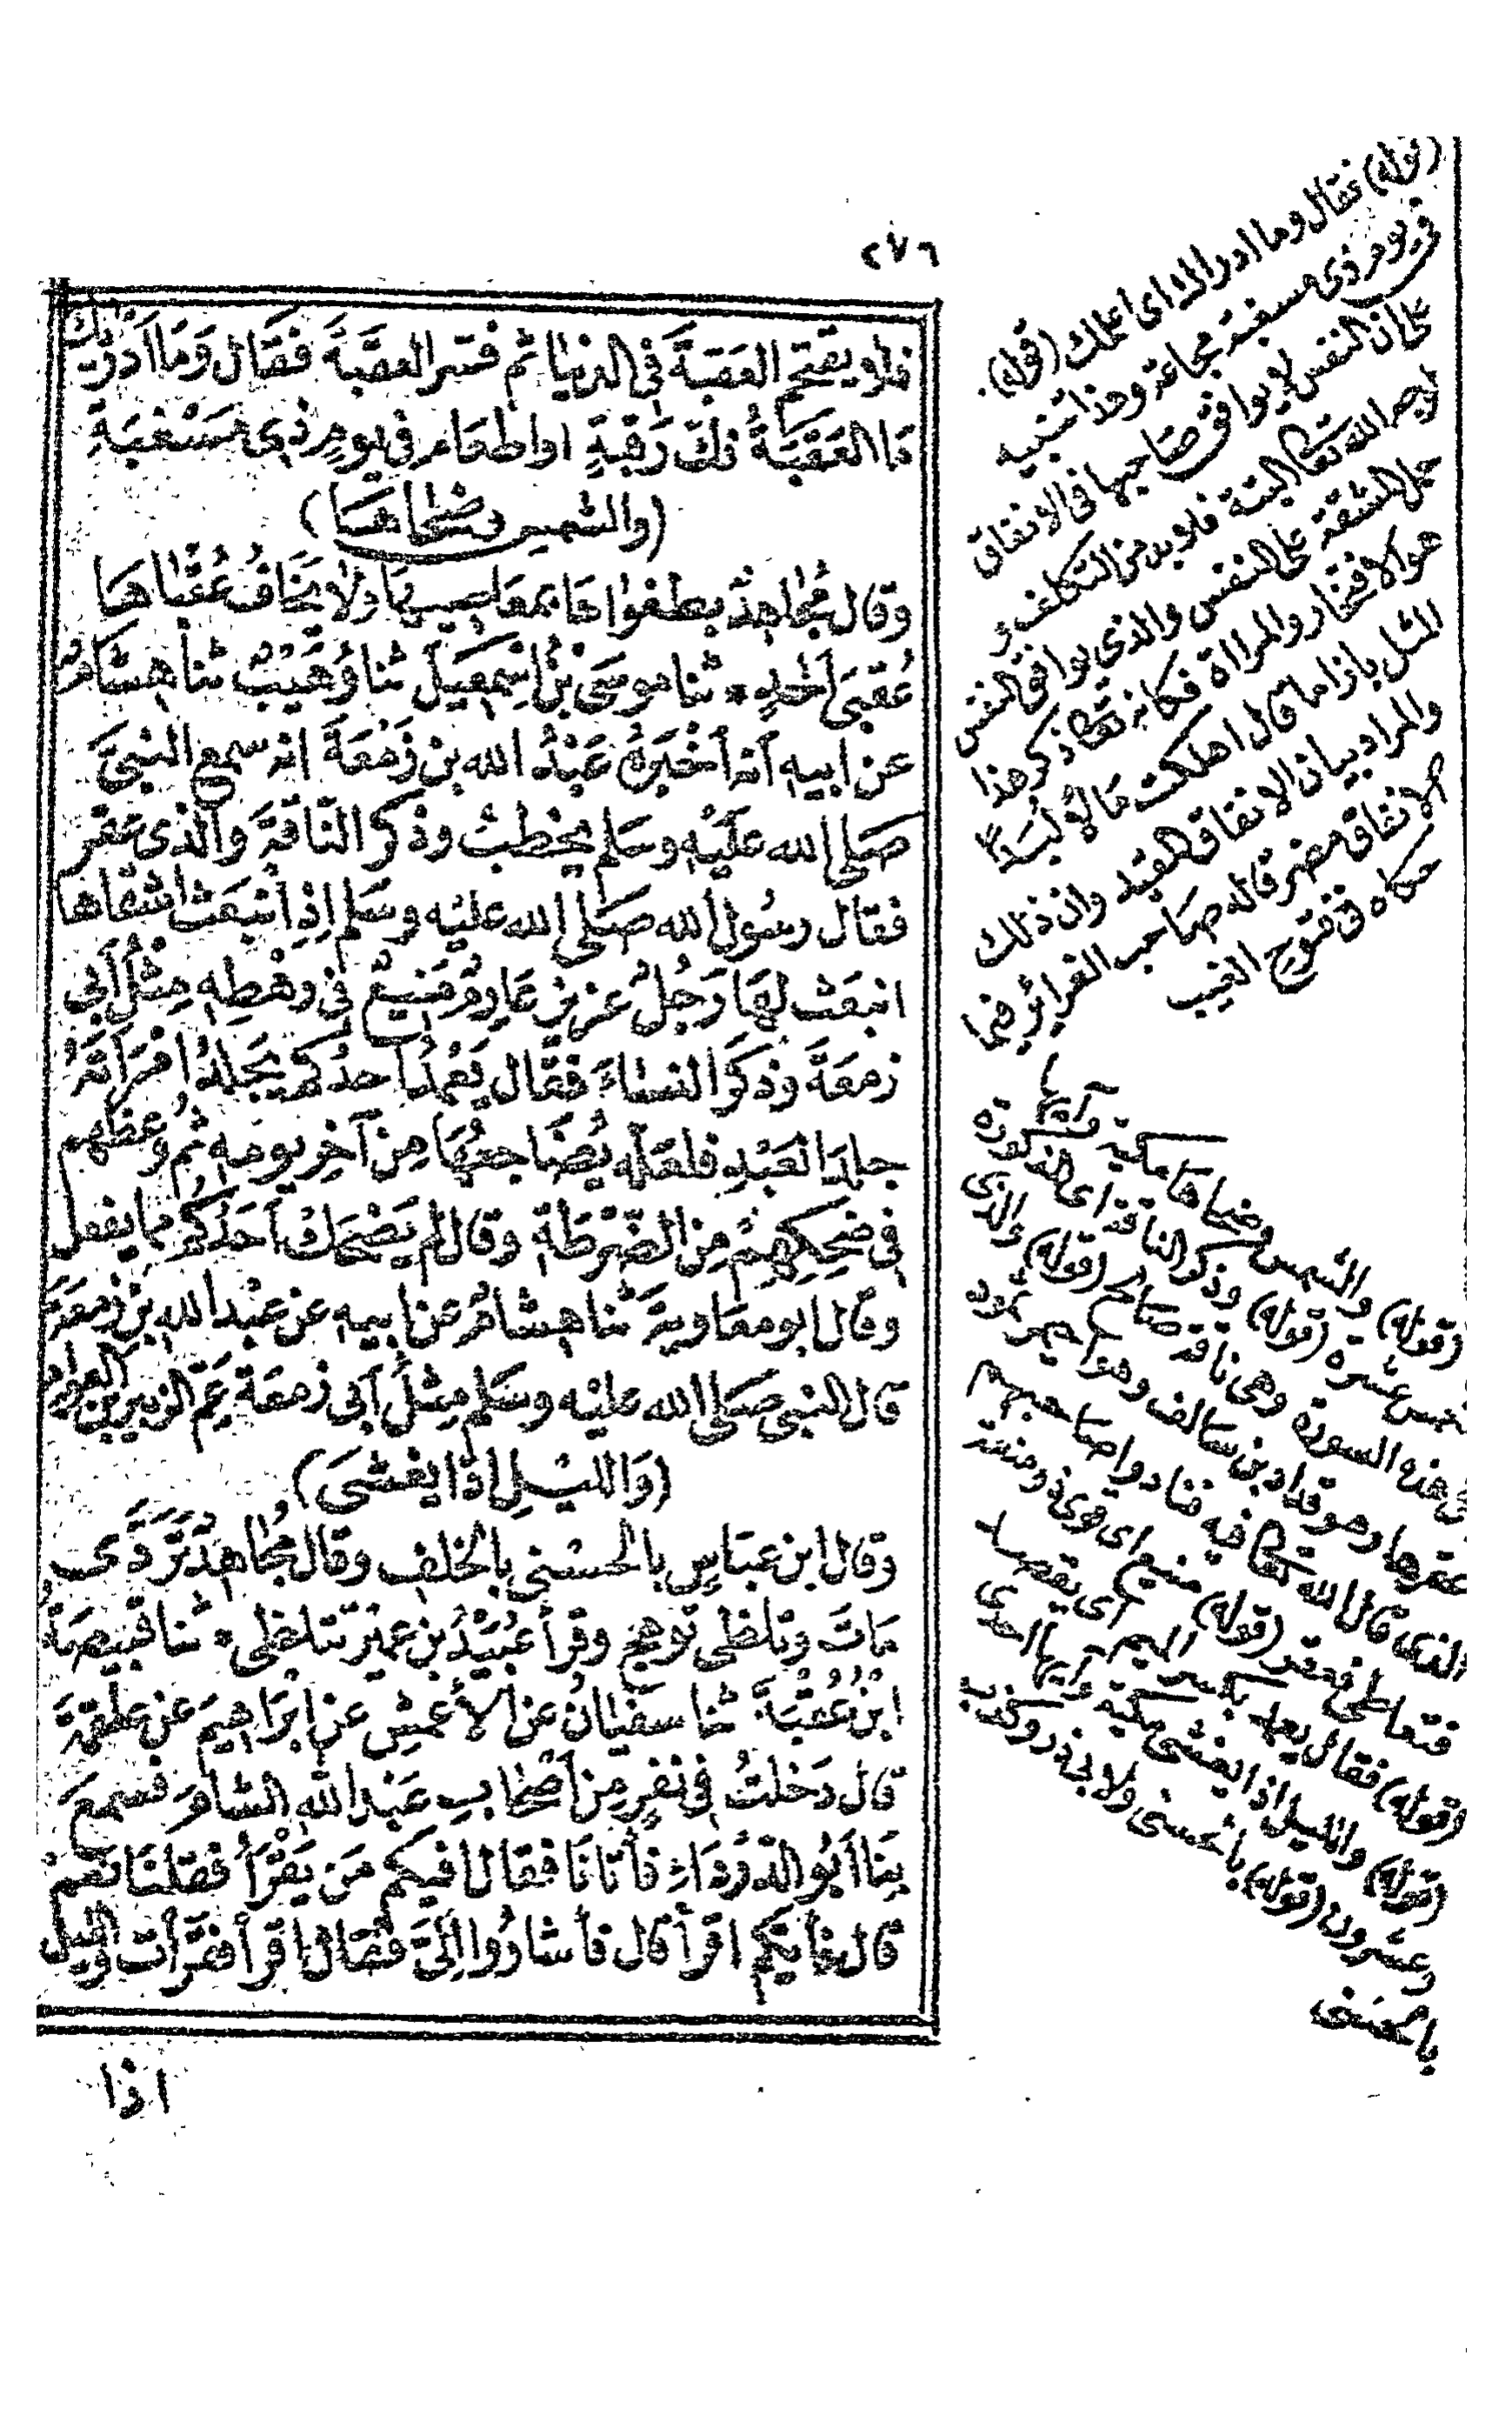 ٢٧٦
فلم يقتحم العَقَبَةَ فى الدنيا ثم فسر العقبَةَ فَقَال وَمَا أَدْرٰىكَ
مَا العَقَبَةُ فَكّ رَقبةٍ او اطعام فى يومٍ ذى مَسْغَبَةٍ
(والشمس وضحاها)
وقال مُجاهِدٌ بطغواها بمعاصيها ولا يَخَافُ عُقْبَاهَا
عُقبَى أَحَدٍ * ثنا موسَى بْنُ اِسْمٰعِيلَ ثنا وُهَيْبٌ ثنا هشامٌ
عن ابيه أنه أَخْبَرَهُ عَبْدُ الله بن زَمْعَةَ انه سمع النبىَّ
صَلى الله عَلَيْه وسَلم يخطبُ وذكر النّاقةَ والذى عقر
فقال رسُول الله صَلى الله عليْه وسَلم إِذِ انْبَعَثَ اشقاها
انبعَثَ لهَا رَجُلٌ عزيز عَارِمٌ مَنِيعٌ فى رهْطِهِ مِثْلُ أَبى
زمعَةَ وذكَرَ النسَاءَ فقَال يَعْمِدُ احدُكم يَجْلِدُ امْرَأَتَهُ
جلدَ العَبْدِ فلعَلّه يُضَاجعُهَا مِنْ آخِرِ يومه ثم وعظهم
فى ضَحِكِهِمْ مِن الضّرْطَةِ وقال لم يَضْحَك اَحَدُكُمْ مما يفعل
وقال ابو معَاوِيَةَ ثنا هشامٌ عن ابيه عن عبْد الله بن زمعَةَ
قال النبى صَلى الله عليْه وسَلم مِثْل أبى زمعَة عَمِّ الزبير بن العوام
(وَالليْلِ اذا يغشى)
وقال ابن عبَاسٍ بالحسْنى بالخلف وقال مُجاهِدٌ تَرَدَّى
مَاتَ وتلظى توهج وقرأ عُبَيْدُ بن عميْرٍ تتلظى * ثنا قَبِيصَةُ
ابْنُ عُقْبَةَ ثنا سفيانُ عن الأعْمَشِ عن اِبْرَاهِيمَ عن علقمَةَ
قال دَخلتُ فى نَفَرٍ مِنْ أَصْحَابِ عَبْد الله الشَّامَ فسَمِعَ
بِنَا أَبُو الدّرْدَاءِ فَأَتَانَا فقال افيكم مَن يَقْرَأُ فقلنَا نَعَمْ
قال فأيّكم اقرأ قال فأشارُوا إِلَىَّ فقَال اقرأ فقَرَأت والليل
اذا
(قوله) فقال وما ادراك اى اعلمك (قوله)
فى يوم ذى مسغبة مجاعة وهذا تنبيه
على ان النفس لا يوافق صاحبها فى الانفاق
لوجه الله تعالى البتة فلابد من التكلف و
حمل المشقة على النفس والذي يوافق النفس
هو الافتخار والمراآة فكانه تعالى ذكر هذا
المثل بازاء ما قال اهلكت مالا لبدا
والمراد بيان الانفاق المفيد وان ذلك
الانفاق مضر قاله صاحب الفرائد فيما
حكاه فى فتوح الغيب
(قوله) والشمس وضحاها مكية وآيها
خمس عشرة (قوله) وذكر الناقة اى المذكورة
فى هذه السورة وهى ناقة صالح (قوله) والذى
عقرها وهو قدار بن سالف وهو احيمر ثمود
الذى قال الله تعالى فيه فنادوا صاحبهم
فتعاطى فعقر (قوله) منيع اى قوى ذو منعة
(قوله) فقال يعمد بكسر الميم اى يقصد
(قوله) والليل اذا يغشى مكية وآيها احدى
وعشرون (قوله) بالحسنى ولابى ذر وكذب
بالحسنى